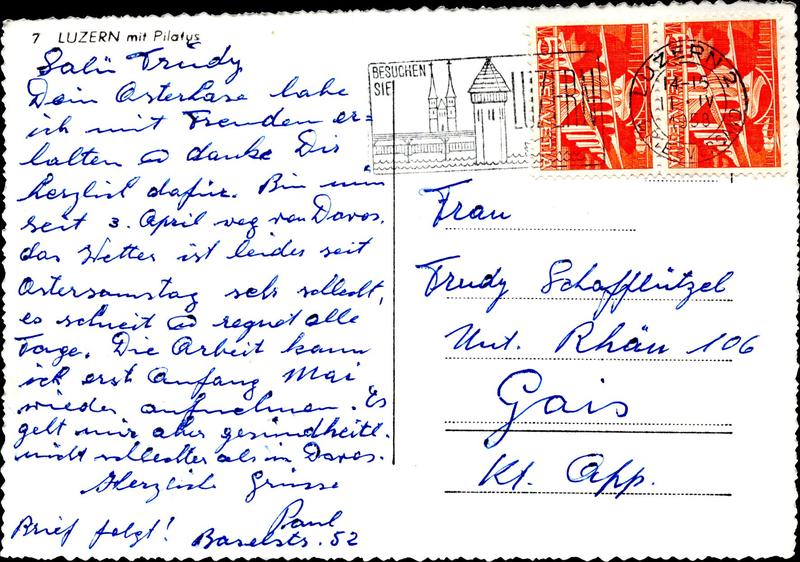 7 LUZERN mit Pilatus
Salü Trudy
Dein Osterhase habe
ich mit Freuden er=
halten u danke Dir
herzlich dafür. Bin nun
seit 3. April weg von Davos,
das Wetter ist leider seit
Ostersamstag sehr schlecht,
es schneit u regnet alle
Tage. Die Arbeit kann
ich erst Anfang Mai
wieder aufnehmen. Es
geht mir aber gesundheitl.
nicht schlechter als in Davos.
Herzliche Grüsse
Paul
Brief folgt! Baselstr. 52
BESUCHEN
SIE
LUZERN
LUZERN 2
14-15
IV
58
HELVETIA
HELVETIA
Frau
Trudy Schafflützel
Unt. Rhän 106
Gais
Kt. App.